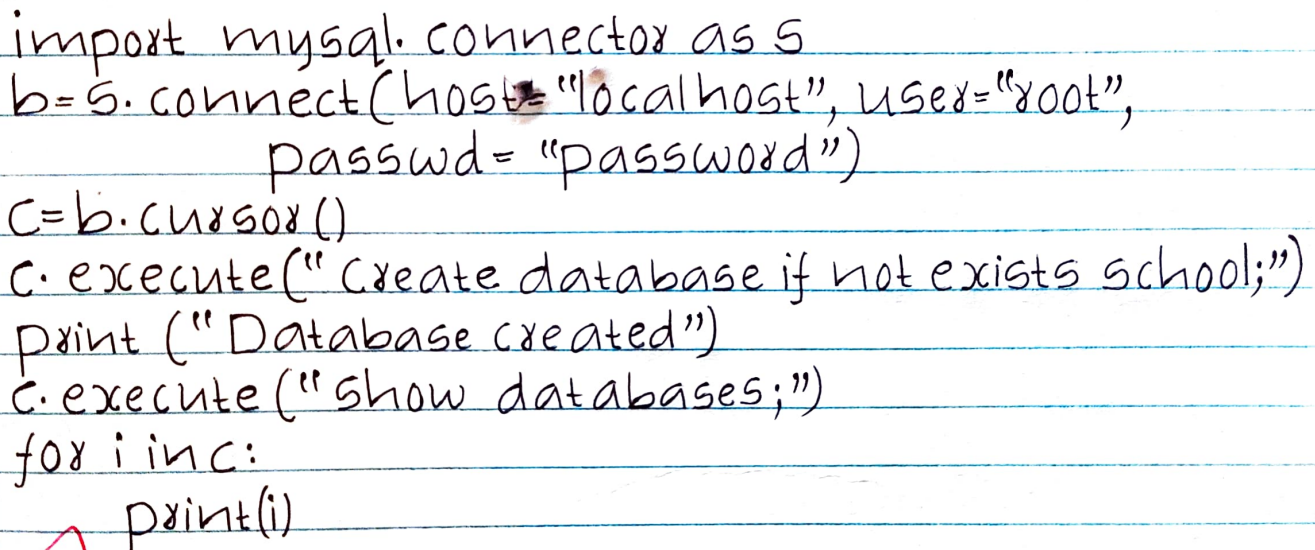 import mysql. connector as s
b=s. connect(host="localhost", user="root",
passwd= "password")
c=b.cursor()
c. execute("create database if not exists school;")
print ("Database created")
c. execute("show databases;")
for i in c:
print(i)